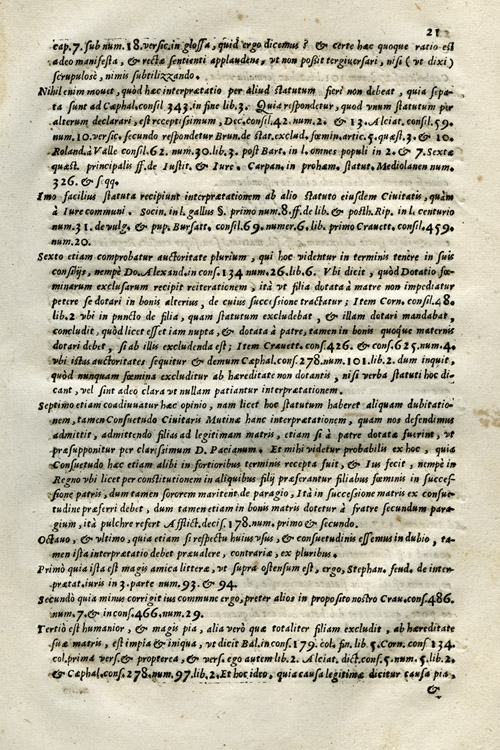 21
cap. 7. sub num. 18. versic. in glossa, quid ergo dicemus? & certe hæc quoque ratio est
adeo manifesta, & rectæ sentienti applaudens, vt non possit tergiuersari, nisi ( vt dixi )
scrupulosè, nimis subtilizzando.
Nihil enim mouet, quòd hæc interprætatio per aliud statutum fieri non debeat, quia sepa-
ta sunt ad Cæphal. consil 343. in fine lib. 3. Quia respondetur, quod vnum statutum per
alterum declarari, est receptissimum, Dec. consil. 42. num. 2. & 13. Alciat. consil. 59.
num. 10. versic. secundo respondetur Brun. de stat. exclud. fœmin. artic. 5. quæst. 3. & 10.
Roland. à Valle consil. 62. num. 30. lib. 3. post Bart. in l. omnes populi in 2. & 7. Sextæ
quæst. principalis ff. de Iustit. & Iure. Carpan. in prohœm. statut. Mediolanen num.
326. & sqq.
Imo facilius statuta recipiunt interprætationem ab alio statuto eiusdem Ciuitatis, quàm
à Iure communi. Socin. in l. gallus §. primo num. 8. ff. de lib. & posth. Rip. in l. centurio
num. 31. de vulg. & pup. Bursatt. consil. 69. numer. 6. lib. primo Crauett. consil. 459.
num. 20.
Sexto etiam comprobatur auctoritate plurium, qui hoc videntur in terminis tenere in suis
consilijs, nempè Do. Alexand. in cons. 134 num. 26. lib. 6. Vbi dicit, quòd Dotatio fœ-
minarum exclusarum recipit reiterationem, ità vt filia dotata à matre non impediatur
petere se dotari in bonis alterius, de cuius successione tractatur; Item Corn. consil. 48.
lib. 2 vbi in puncto de filia, quam statutum excludebat, & illam dotari mandabat,
concludit, quòd licet esset iam nupta, & dotata à patre, tamen in bonis quoque maternis
dotari debet, si ab illis excludenda est; Item Crauett. cons. 426. & cons. 625. num. 4.
vbi istas auctoritates sequitur & demum Cæphal. cons. 278. num. 101. lib. 2. dum inquit,
quòd nunquam fœmina excluditur ab hæreditate non dotantis, nisi verba statuti hoc di-
cant, vel sint adeo clara vt nullam patiantur interprætationem.
Septimo etiam coadiuuatur hæc opinio, nam licet hoc statutum haberet aliquam dubitatio-
nem, tamen Consuetudo Ciuitaris Mutinæ hanc interprætationem, quam nos defendimus
admittit, admittendo filias ad legitimam matris, etiam si à patre dotatæ fuerint, vt
præsupponitur per clarissimum D. Pacianum. Et mihi videtur probabilis ex hoc, quia
Consuetudo hæc etiam alibi in fortioribus terminis recepta fuit, & Ius fecit, nempè in
Regno vbi licet per constitutionem in aliquibus filij præferantur filiabus fœminis in succes-
sione patris, dum tamen sororem maritent de paragio, Ità in successione matris ex consue-
tudine præferri debet, dum tamen etiam in bonis matris dotetur à fratre secundum para-
gium, ità pulchre refert Afflict. decis. 178. num. primo & secundo.
Octauo, & vltimo, quia etiam si respectu huius vsus, & consuetudinis essemus in dubio, ta-
men ista interprætatio debet præualere, contrariæ, ex pluribus.
Primò quia ista est magis amica litteræ, vt supra ostensum est, ergo, Stephan. feud. de inter-
prætat. iuris in 3. parte num. 93. & 94.
Secundò quia minus corrigit ius commune ergo, preter alios in proposito nostro Crau. cons. 486.
num. 7. & in cons. 466. num. 29.
Tertiò est humanior, & magis pia, alia verò quæ totaliter filiam excludit, ab hæreditate
suæ matris, est impia & iniqua, vt dicit Bal. in cons. 179. col. fin. lib. 5. Corn. cons 134.
col. prima vers. & propterea, & vers. ego autem lib. 2. Alciat. dict. cons. 5. num. 5. lib. 2.
& Cæphal. cons. 278. num. 97. lib. 2. Et hoc ideo, quia causa legitimæ dicitur causa pia,
&